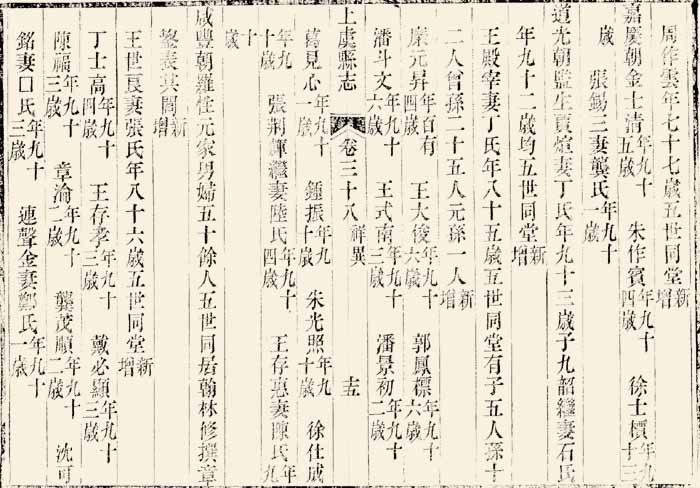 周作雲年七十七歲五世同堂新增
嘉慶朝金士清年九十五歲 朱作賓年九十四歲 徐士標年九十三
歲 張錫三妻龔氏年九十一歲
道光朝監生賈煊妻丁氏年九十三歲子九韶繼妻石氏
年九十二歲均五世同堂新增
王殿宰妻丁氏年八十五歲五世同堂有子五人孫十
二人曾孫二十五人元孫一人新增
糜元昇年百有四歲 王大俊年九十六歲 郭鳳標年九十六歲
潘斗文年九十六歲 王式南年九十三歲 潘景初年九十二歲
上虞縣志 卷三十八 祥異
葛見心年九十一歲 鍾振年九十歲 朱光照年九十歲 徐仕成
年九十歲 張荊輝繼妻陸氏年九十四歲 王存惠妻陳氏年九
十歲
咸豐朝羅性元家男婦五十餘人五世同居翰林修撰章
鋆表其閭新增
王世良妻張氏年八十六歲五世同堂新增
丁士高年九十四歲 王存孝年九十三歲 戴必顯年九十三歲
陳福年九十三歲 章淪年九十二歲 龔茂順年九十二歲 沈可
銘妻□氏年九十三歲 連聲金妻鄭氏年九十一歲